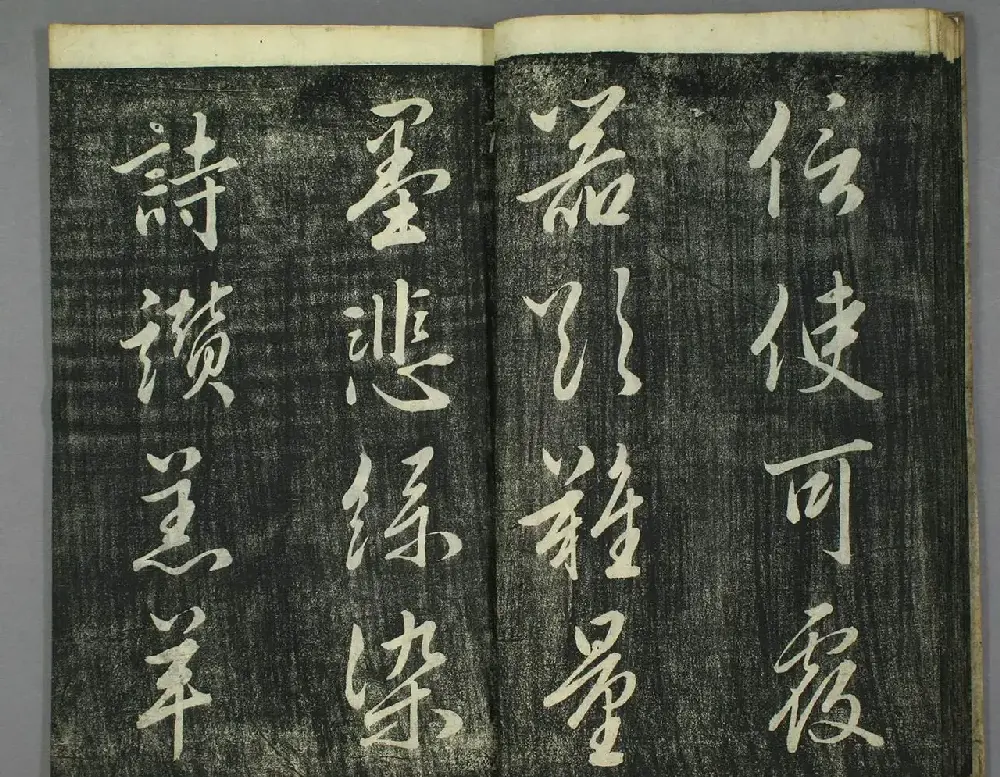 信使可覆
器欲難量
墨悲絲染
詩讚羔羊